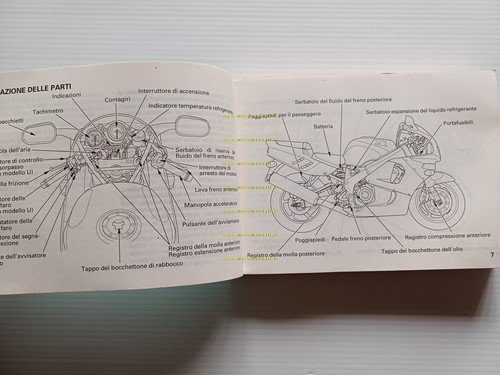 AZIONE DELLE PARTI
Indicazioni
Contagiri
Interruttore di accensione
Tachimetro
Indicatore temperatura refrigerante
Serbatoio di riserva del
fluido del freno anteriore
ola dell'aria
tore di controllo
sorpasso
modello U)
Interruttore di
arresto del motore
a frizione
Leva freno anteriore
modello U)
Manopola acceleratore
tatore delle
faro
Pulsante dell'avviamento
modello U)
tatore delle
faro
tore dei segna-
rezione
te dell'avvisatore
Registro della molla anteriore
Registro estensione anteriore
Tappo del bocchettone di rabbocco
Serbatoio del fluido del freno posteriore
Poggiapiedi per il passeggero
Serbatoio espansione del liquido refrigerante
Batteria
Portafusibili
Poggiapiedi
Pedale freno posteriore
Registro compressione anteriore
Registro della molla posteriore
Tappo del bocchettone dell'olio
7